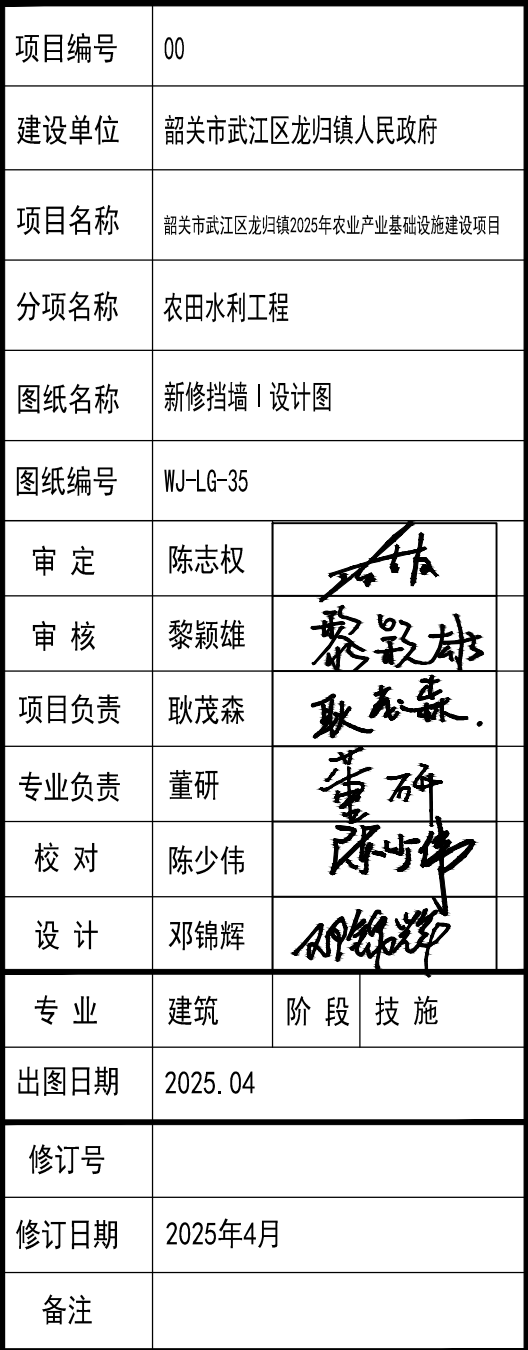 项目编号 00
建设单位 韶关市武江区龙归镇人民政府
项目名称 韶关市武江区龙归镇2025年农业产业基础设施建设项目
分项名称 农田水利工程
图纸名称 新修挡墙Ⅰ设计图
图纸编号 WJ-LG-35
审 定 陈志权
审 核 黎颖雄 黎颖雄
项目负责 耿茂森 耿茂森.
专业负责 董研 董研
校 对 陈少伟 陈少伟
设 计 邓锦辉 邓锦辉
专 业 建筑 阶 段 技 施
出图日期 2025.04
修订号
修订日期 2025年4月
备注